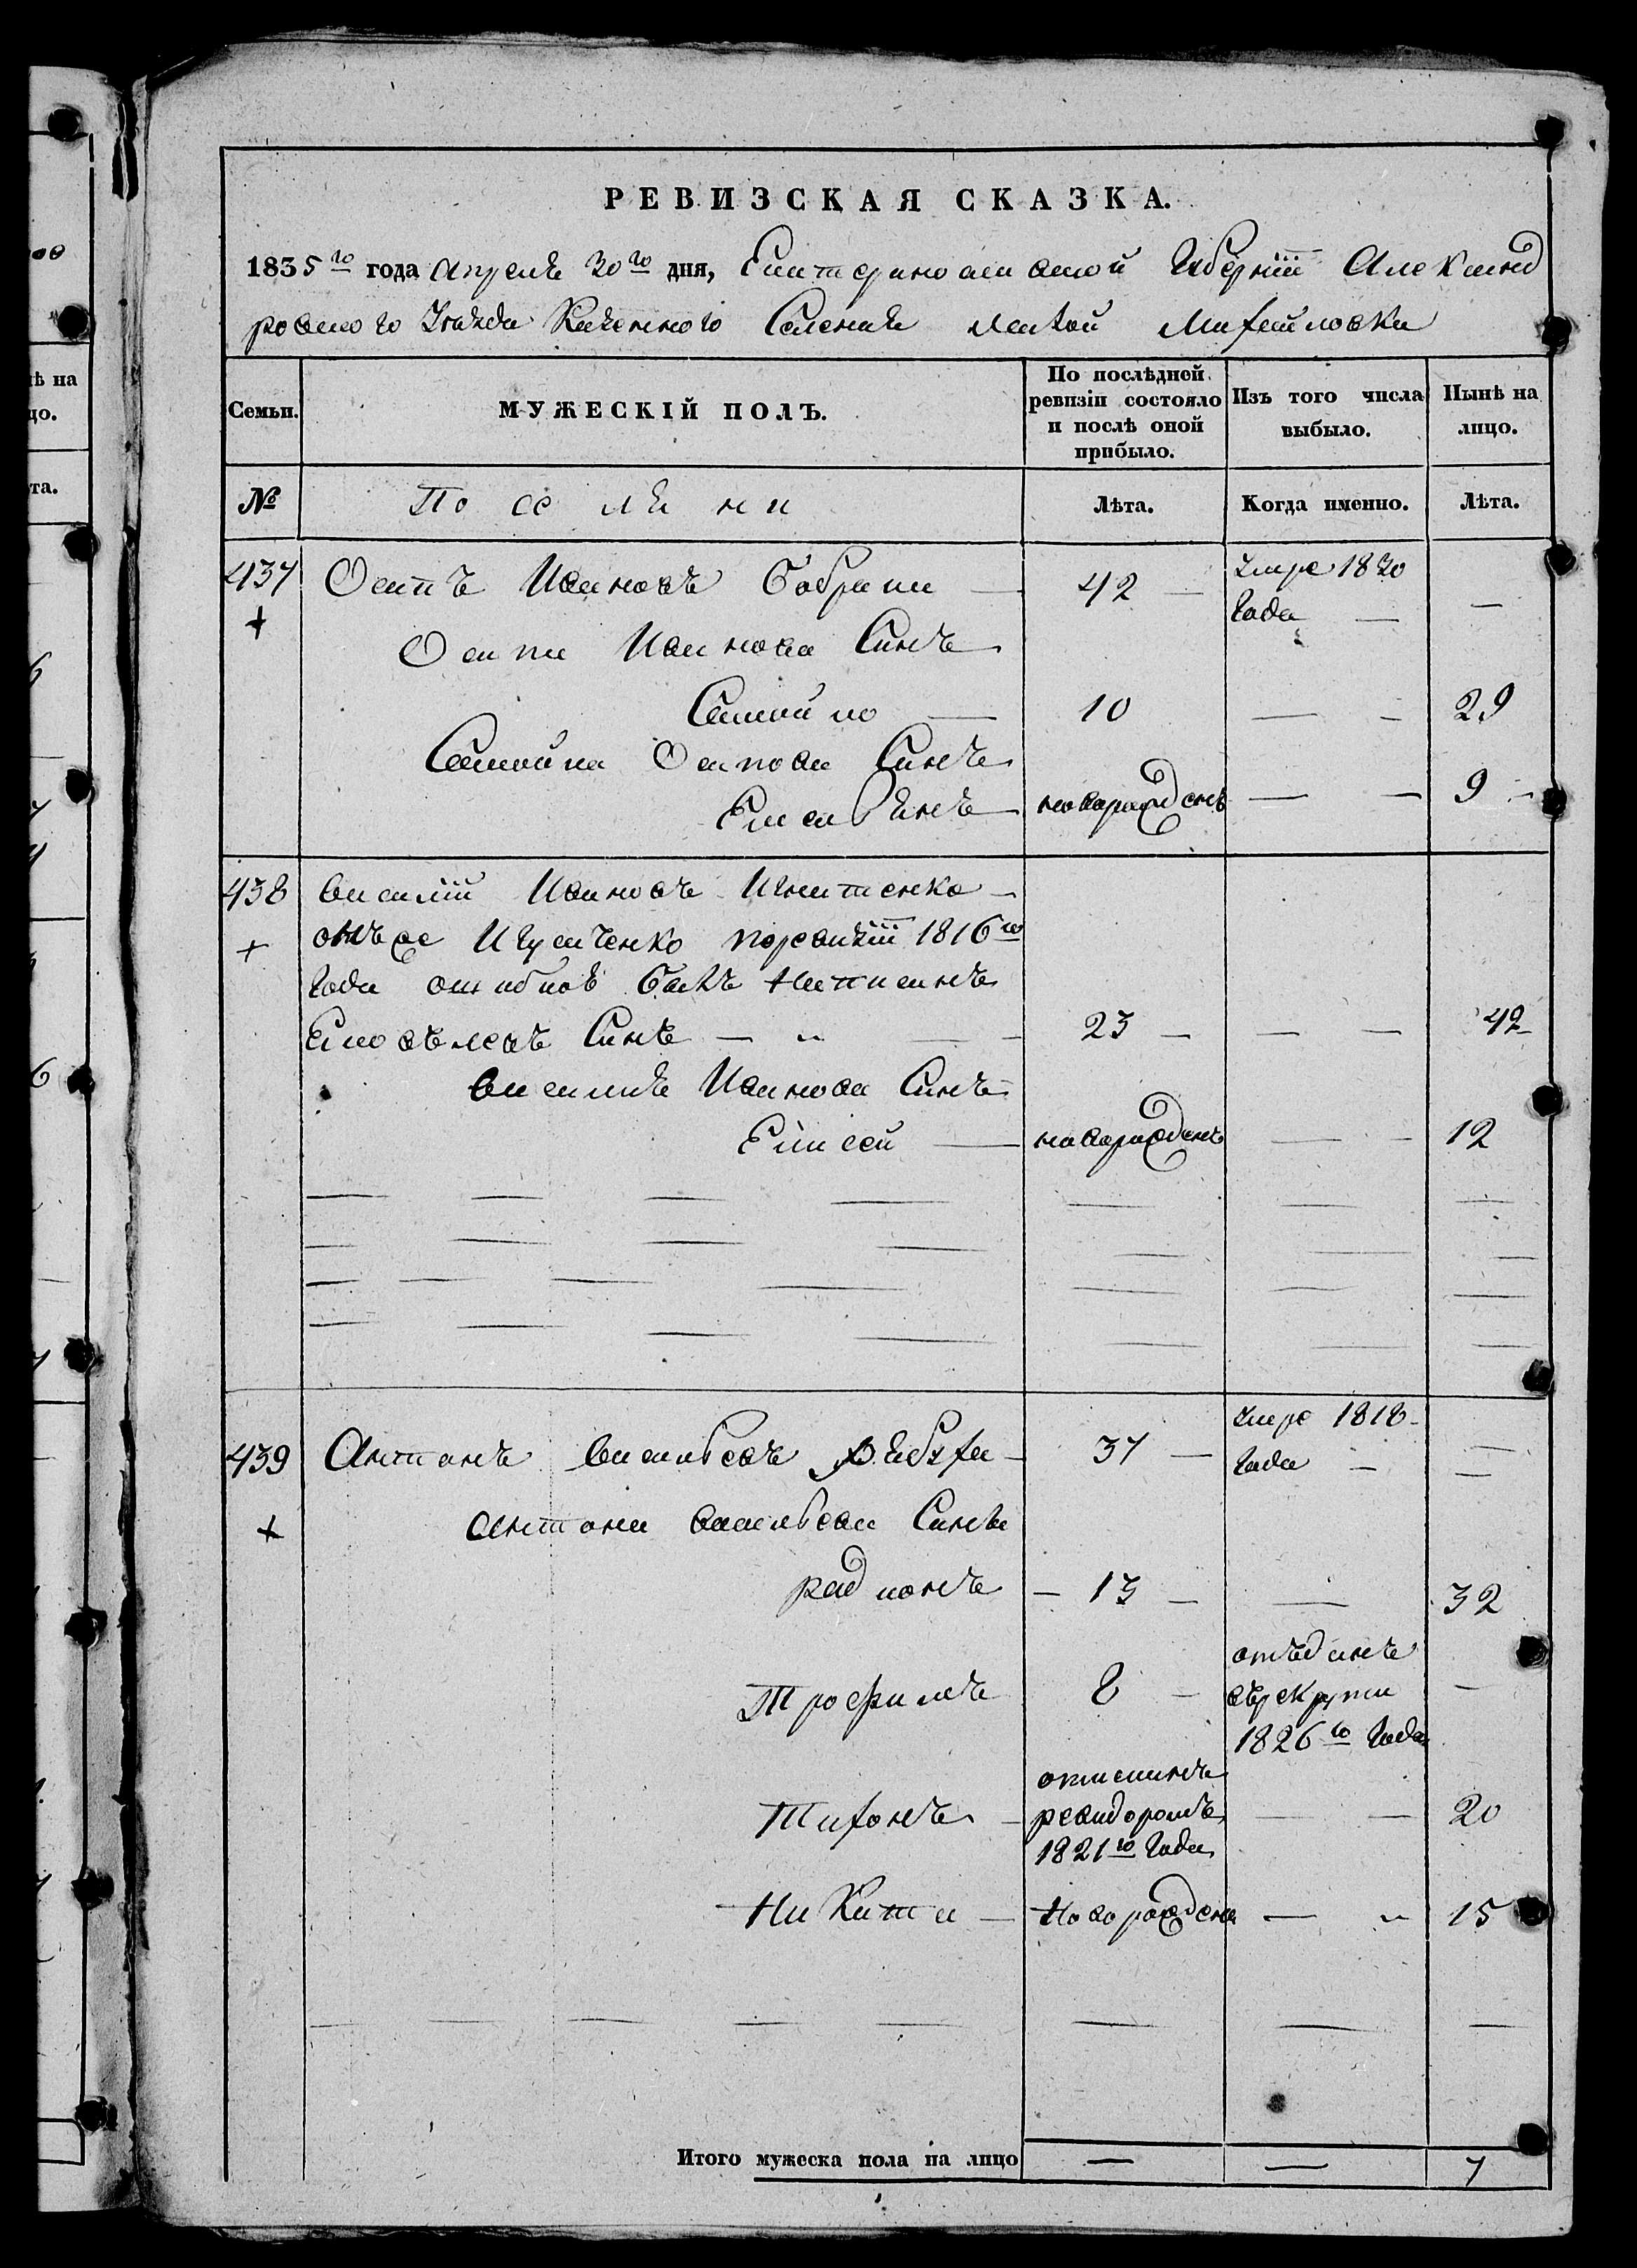 РЕВИЗСКАЯ СКАЗКА.
1835 го года Апреля 30 го дня, Екатеринославской Губернии Александ
ровского Уезда Казенного Селения малой Михайловки
Семьи. МУЖЕСКІЙ ПОЛЪ. По послѣдней ревизіи состояло и послѣ оной прибыло. Изъ того числа выбыло. Нынѣ на лицо.
№ Поселяни Лѣта. Когда именно. Лѣта.
437 Остапъ Ивановъ 42 — умре 1830 Года — —
Остапа Иванова Синъ
Самойло — 10 — — 29
Самойла Остапова Синъ
Емельянъ новорожденъ — — 9
438 Василій Ивановъ Игнатенко —
онъже Игнатченко поревизіи 1816 го
Года ошибкою былъ написанъ
Синъ — 23 — — — 42
Василия Иванова Синъ
Елисей — новорожденъ — — 12
439 Антонъ Васильевъ — 37 — умре 1818 Года — —
Антона Васильева Сины
радионъ — 13 — — 32
Трофимъ 8 — отъданъ врекруты 1826 го Года —
Тихонъ — отысканъ ревизоромъ 1821 го Года — — 20
Никита — Новорожденъ — 15
Итого мужеска пола на лицо — — 7
ѣ на
цо.
та.